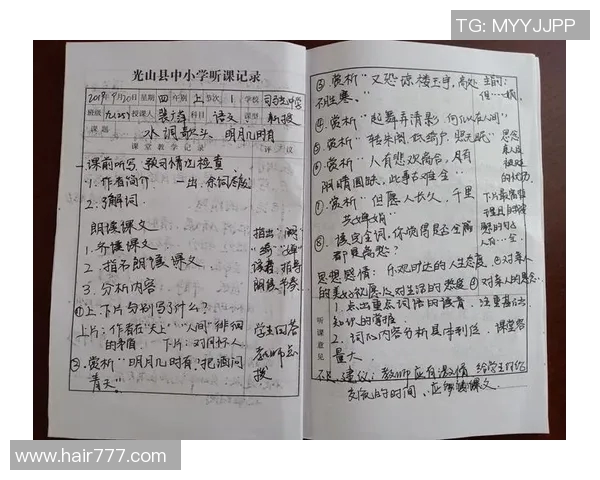 TG: MYYJJPP
光山县中小学听课记录
2019年9月20日 星期 四 年级 上 节次 1 学校
班级 九(25) 授课人 科目 语文 课型 新授
课题 水调歌头·明月几时有
课堂教学记录 评议
一课前听写、预习情况检查
1. 作者简介
2. 了解词
朗读课文
1. 齐读课文 指出
2. 指名朗读课文 读音，指导
3. 分析内容 朗读节奏
①上、下片分别写了什么？
上片：作者在"天上""人间"徘徊 学生回答
的矛盾 下片：对月怀人 教师点
②. 赏析"明月几时有，把酒问 拨
青天"
③. 赏析"又恐琼楼玉宇，高处
不胜寒。"
④. 赏析"起舞弄清影，何似在人间"
⑤. 赏析"转朱阁，低绮户，照无眠" 思念
⑥. 赏析"人有悲欢离合，月有 亲人
阴晴圆缺，此事古难全"
⑦. 赏析"但愿人长久，千里
共婵娟"
⑧. 读完全词，你觉得是否全篇
都是离愁？
思想感情：乐观旷达的人生态度 ②对亲人
的美好祝愿 ③对生活的热爱 ④对亲人的思念
听课意见
1. 点出重点词语的读音，注重基础
知识的掌握
2. 词的内容分析具体到位，课堂容
量大。
建议：教师应有激情，给学生
交流的时间，应
www.hair777.com